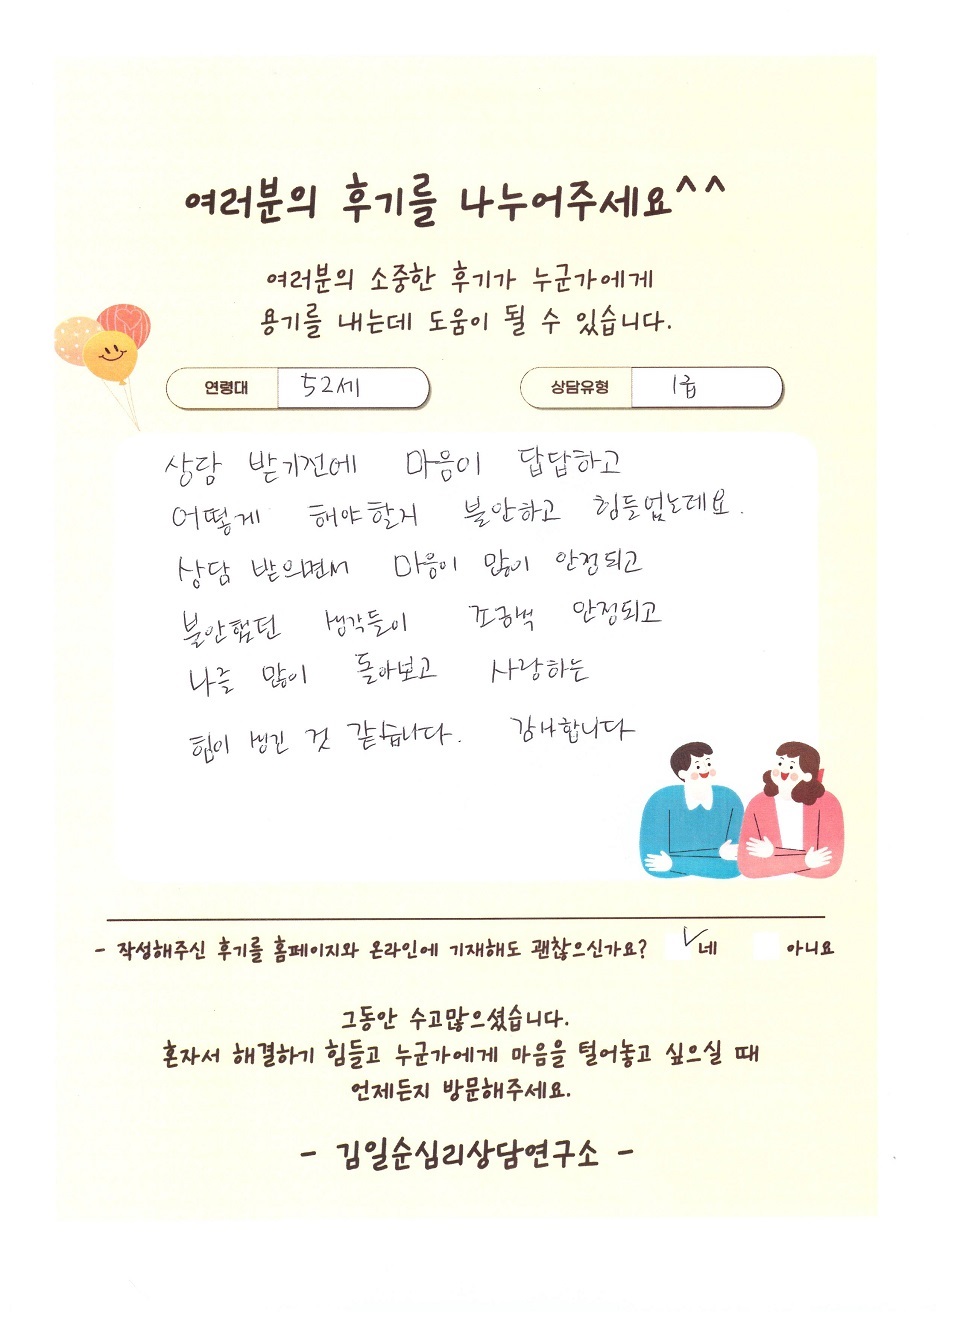 여러분의 후기를 나누어주세요^^
여러분의 소중한 후기가 누군가에게
용기를 내는데 도움이 될 수 있습니다.
연령대 52세 상담유형 1급
상담 받기전에 마음이 답답하고
어떻게 해야할지 불안하고 힘들었는데요.
상담 받으면서 마음이 많이 안정되고
불안했던 생각들이 조금씩 안정되고
나를 많이 돌아보고 사랑하는
힘이 생긴 것 같습니다. 감사합니다
- 작성해주신 후기를 홈페이지와 온라인에 기재해도 괜찮으신가요? ✓ 네 아니요
그동안 수고많으셨습니다.
혼자서 해결하기 힘들고 누군가에게 마음을 털어놓고 싶으실 때
언제든지 방문해주세요.
- 김일순심리상담연구소 -